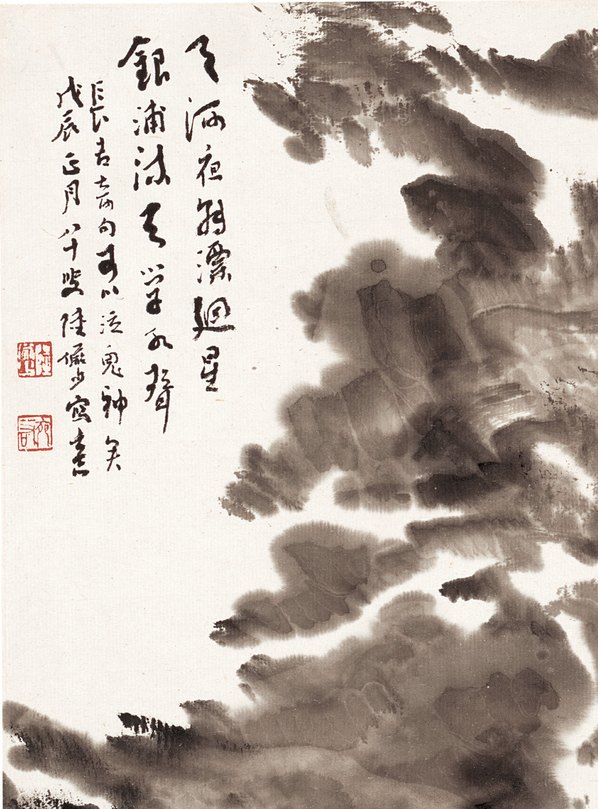 天河夜轉漂廻星
銀浦流云學水聲
長吉奇句可以泣鬼神矣
戊辰正月八十叟陸儼少寫意